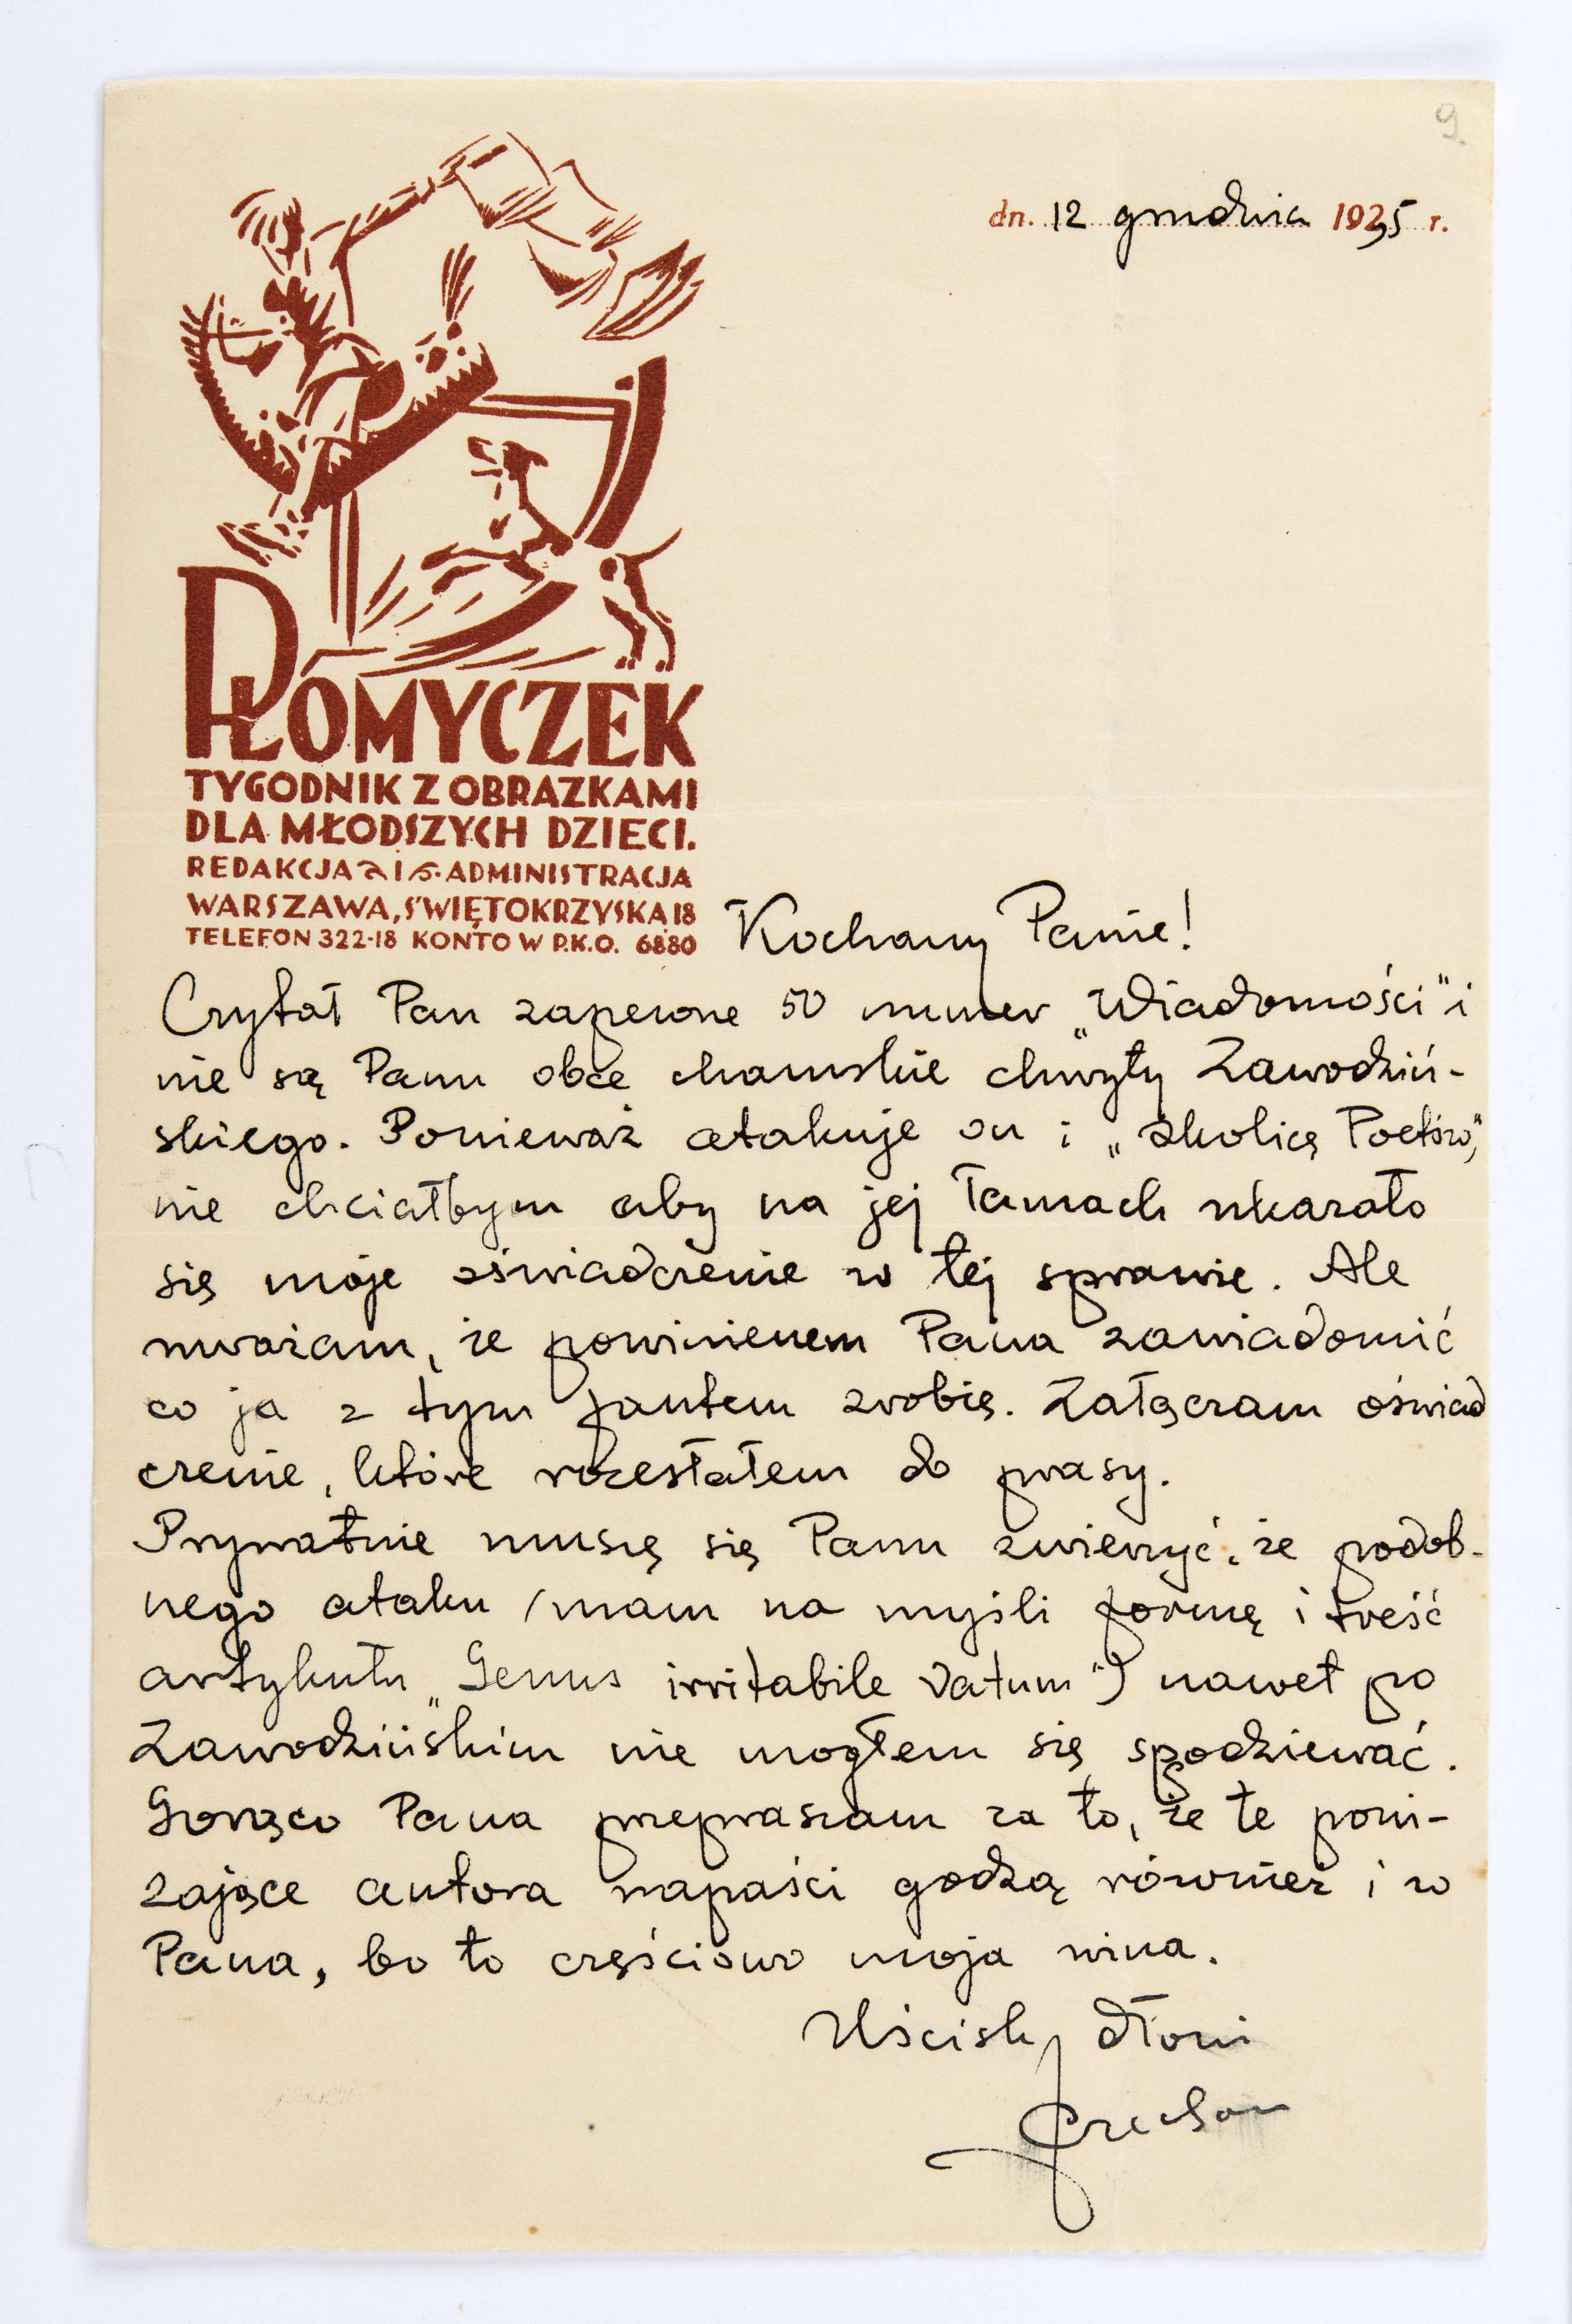 9.
dn. 12 grudnia 1935 r.
PŁOMYCZEK
TYGODNIK Z OBRAZKAMI
DLA MŁODSZYCH DZIECI.
REDAKCJA I ADMINISTRACJA
WARSZAWA, ŚWIĘTOKRZYSKA 18
TELEFON 322-18 KONTO W P.K.O. 6880
Kochany Panie!
Czytał Pan zapewne 50 numer „Wiadomości" i
nie są Panu obce chamskie chwyty Zawodziń-
skiego. Ponieważ atakuje on i „Okolicę Poetów",
nie chciałbym aby na jej łamach ukazało
się moje oświadczenie w tej sprawie. Ale
uważam, że powinienem Pana zawiadomić
co ja z tym fantem zrobię. Załączam oświad
czenie, które rozesłałem do prasy.
Prywatnie muszę się Panu zwierzyć, że podob-
nego ataku /mam na myśli formę i treść
artykułu „Genus irritabile vatum") nawet po
Zawodzińskim nie mogłem się spodziewać.
Gorąco Pana przepraszam za to, że te poni-
żające autora napaści godzą również i w
Pana, bo to częściowo moja wina.
Uścisk dłoni
JCzechow